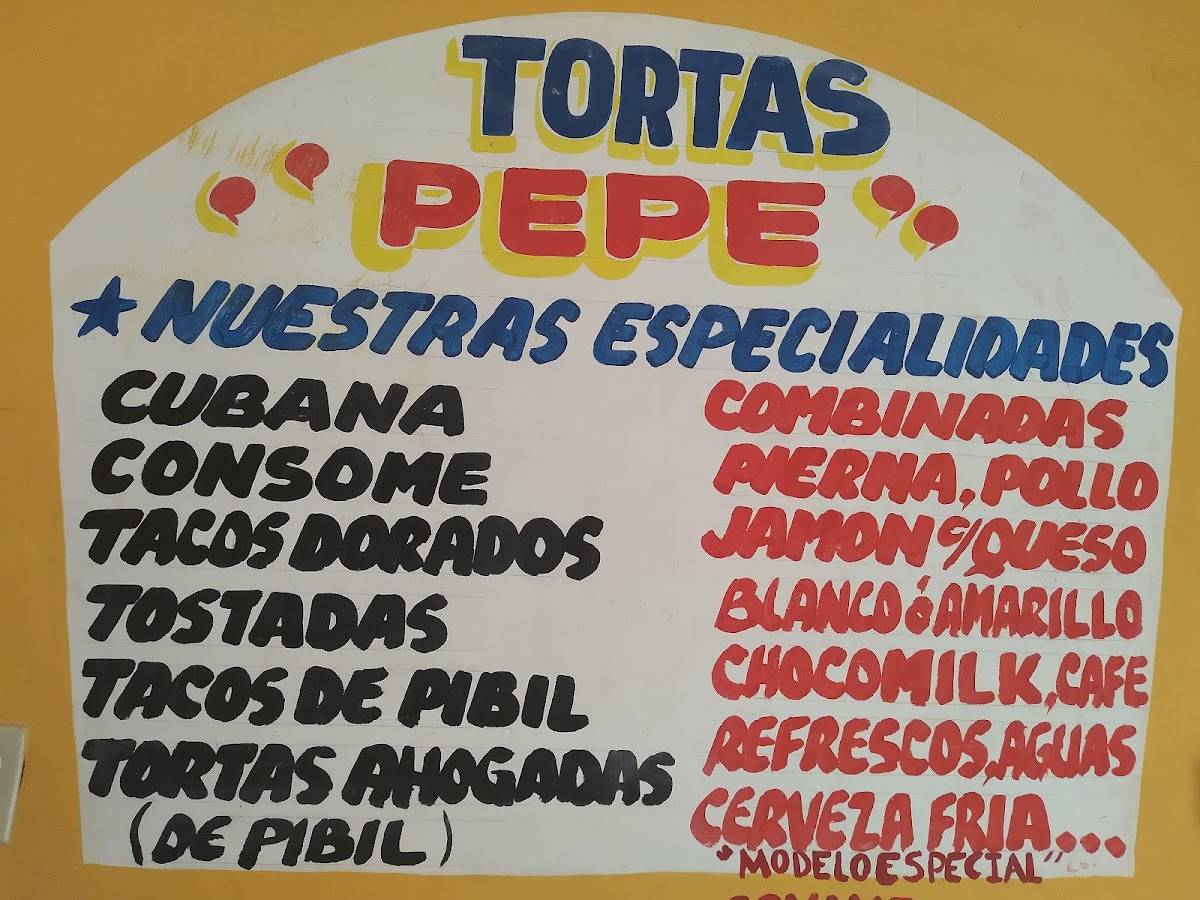 TORTAS
"PEPE"
★ NUESTRAS ESPECIALIDADES
CUBANA
CONSOME
TACOS DORADOS
TOSTADAS
TACOS DE PIBIL
TORTAS AHOGADAS
(DE PIBIL)
COMBINADAS
PIERNA, POLLO
JAMON C/QUESO
BLANCO ó AMARILLO
CHOCOMILK, CAFE
REFRESCOS, AGUAS
CERVEZA FRIA...
"MODELO ESPECIAL"